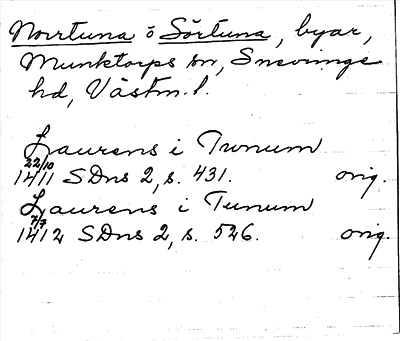 Norrtuna o Sörtuna, byar,
Munktorps sn, Snevinge
hd, Västm. l.
Laurens i Tunum
22/10
1411 SDns 2, s. 431. orig.
Laurens i Tunum
7/7
1412 SDns 2, s. 526. orig.